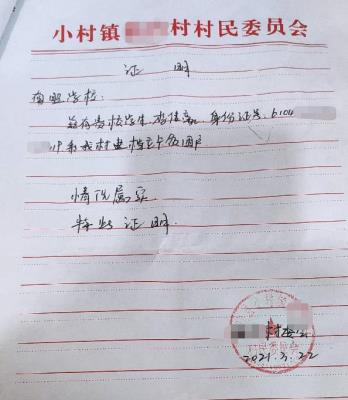 小村镇 村村民委员会
证明
学校:
兹有贵校学生 身份证号:6104
系我村建档立卡贫困户
情况属实
特此证明.
村委会
村民委员会
2021.3.22